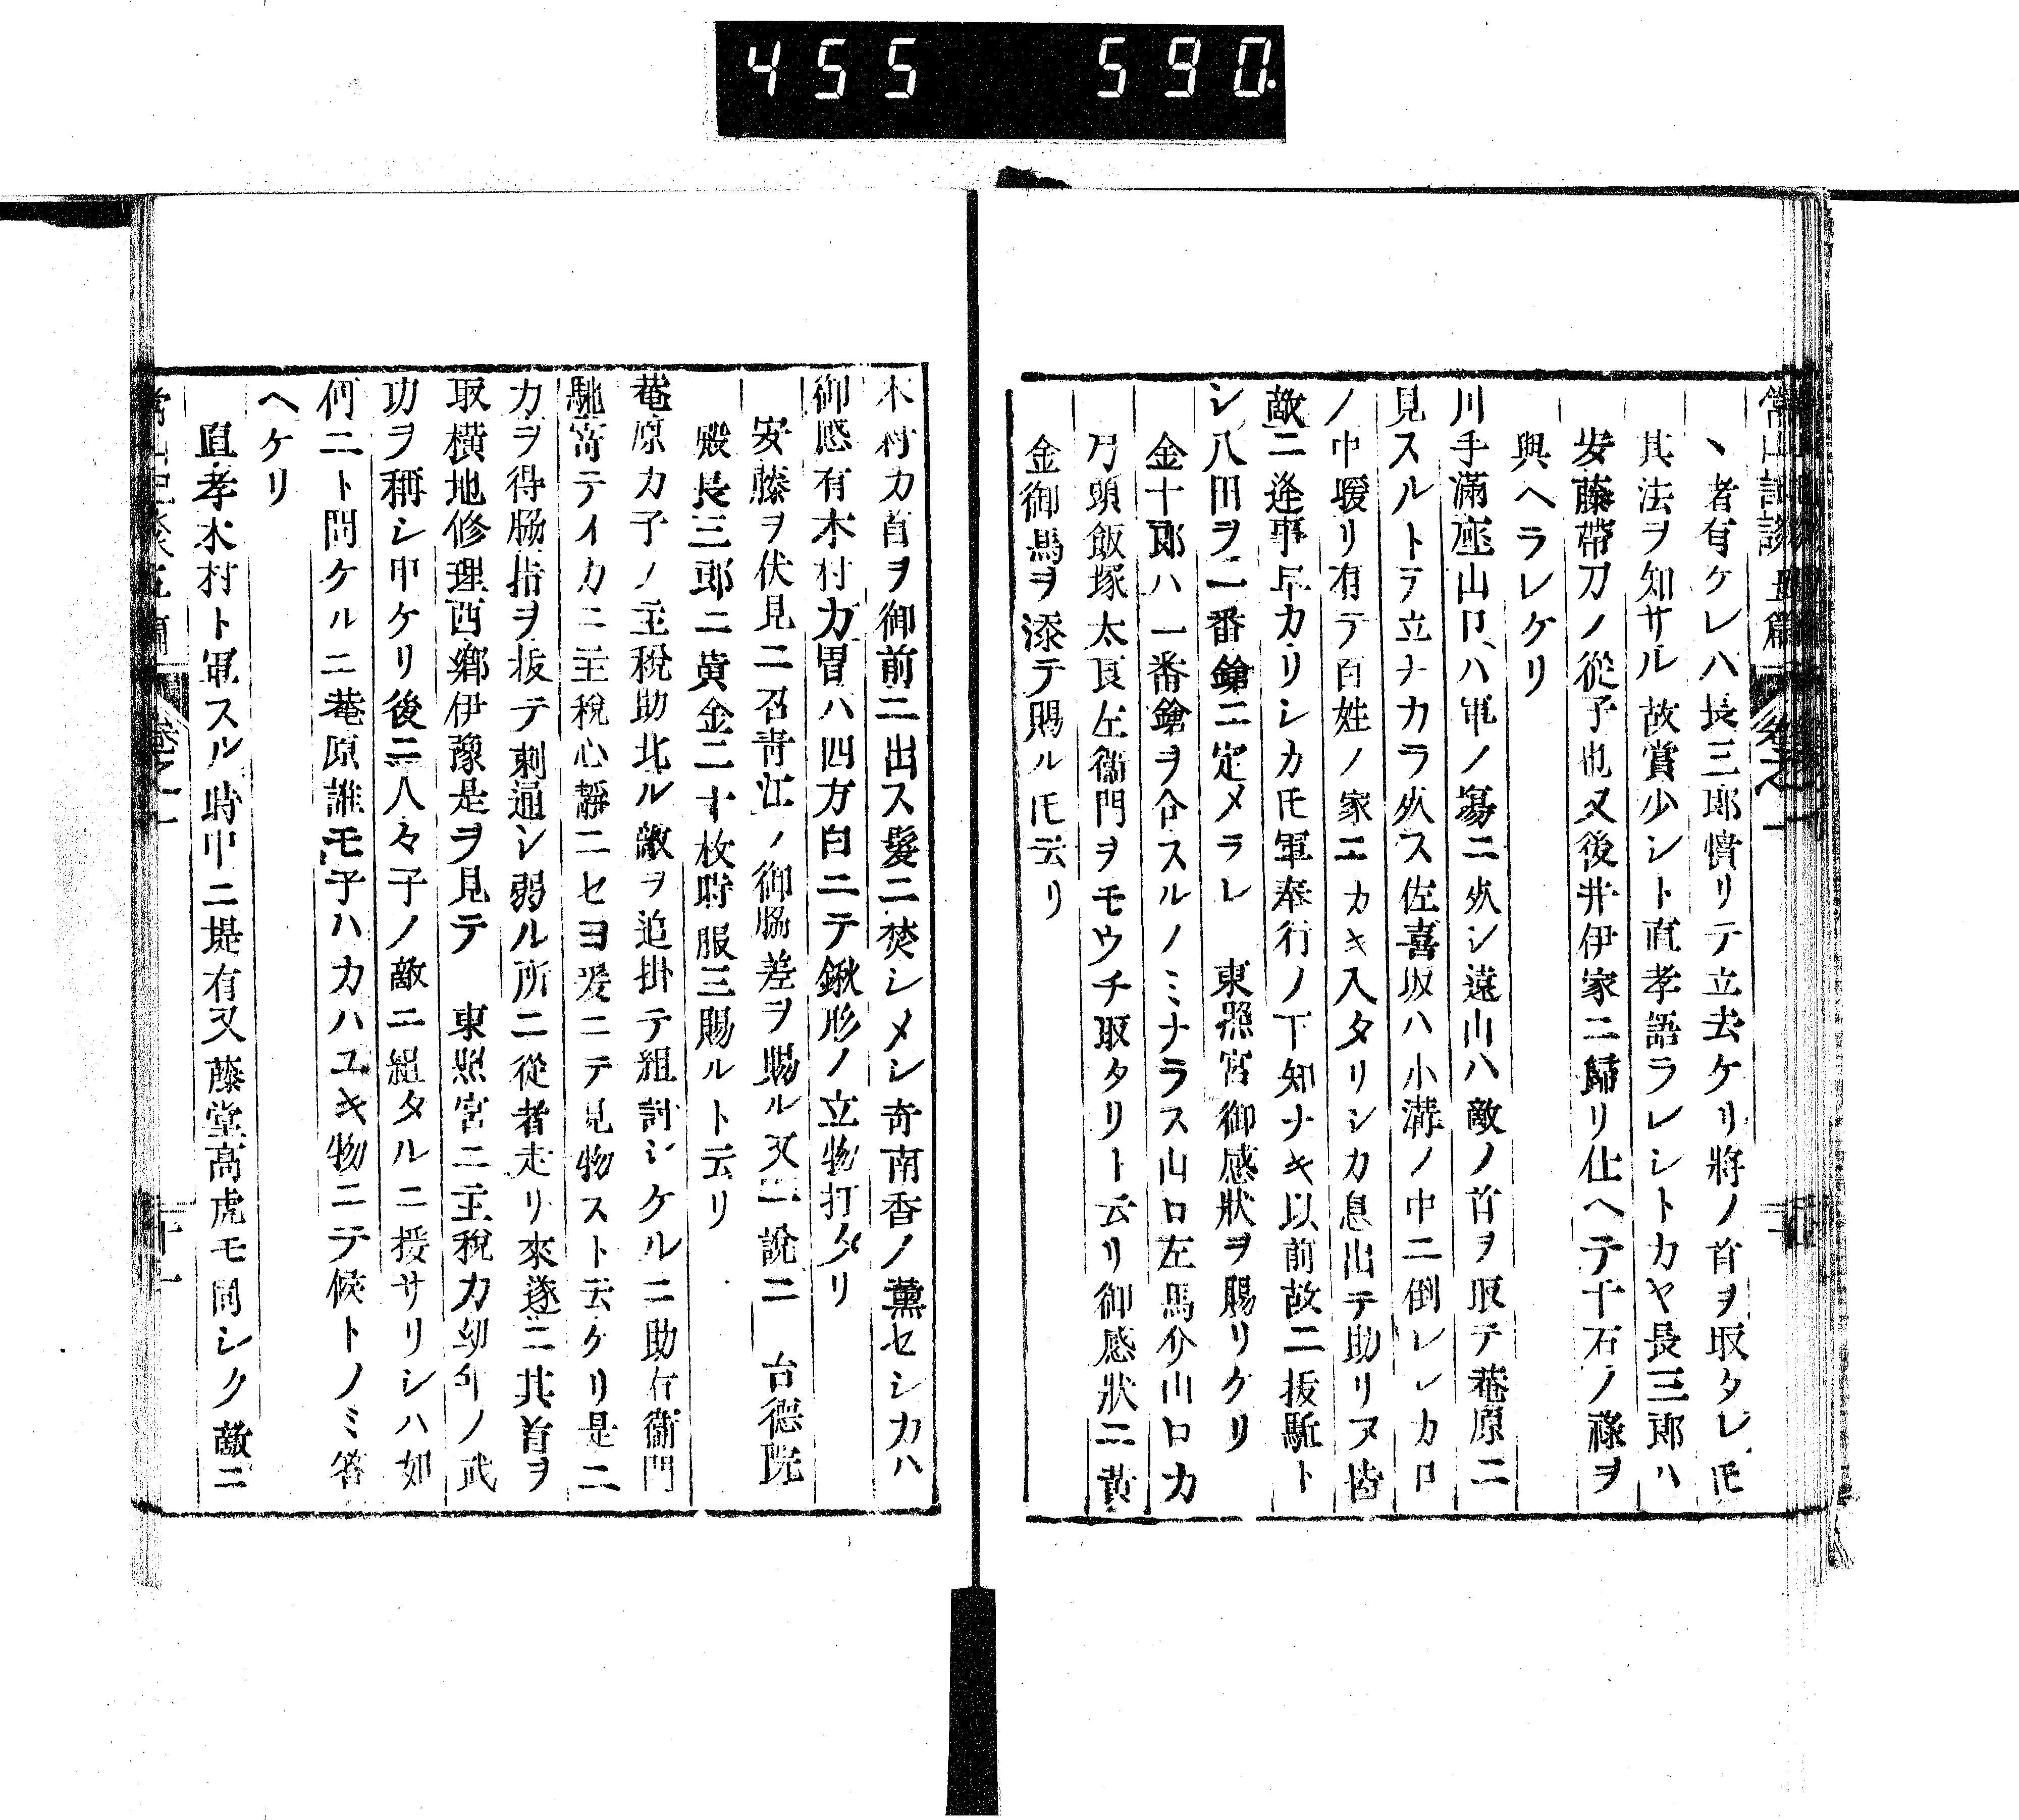 455 590.
常山記談 五篇 卷之一
ヽ者有ケレハ長三郎憤リテ立去ケリ將ノ首ヲ取タレ𪜈
其法ヲ知サル故賞少シト直孝語ラレシトカヤ長三郎ハ
安藤帶刀ノ從子也又後井伊家ニ歸リ仕ヘテ千石ノ祿ヲ
與ヘラレケリ
川手滿
山口ハ軍ノ場ニ死シ遠山ハ敵ノ首ヲ取テ菴原ニ
見スルトテ立ナカラ死ス佐喜坂ハ小溝ノ中ニ倒レシカ口
ノ中暖リ有テ百姓ノ家ニカキ入タリシカ息出テ助リヌ皆
敵ニ逢事早カリシカ𪜈軍奉行ノ下知ナキ以前故ニ拔駈ト
シ八田ヲ二番鎗ニ定メラレ 東照宮御感狀ヲ賜リケリ
金十郎ハ一番鎗ヲ合スルノミナラス山口左馬介山口カ
弓頭飯塚太良左衞門ヲモウチ取タリト云リ御感狀ニ黄
金御馬ヲ添テ賜ル𪜈云リ
木村カ首ヲ御前ニ出ス髮ニ焚シメシ奇南香ノ薰セシカハ
御感有木村カ冑ハ四方白ニテ鍬形ノ立物打タリ
安藤ヲ伏見ニ召靑江ノ御脇差ヲ賜ル又一說ニ 台德院
殿長三郎ニ黄金二十枚時服三賜ルト云リ
菴原カ子ノ主稅助北ル敵ヲ追掛テ組討シケルニ助右衞門
馳寄テイカニ主稅心靜ニセヨ爰ニテ見物スト云ケリ是ニ
力ヲ得脇指ヲ拔テ刺通シ弱ル所ニ從者走リ來遂ニ其首ヲ
取橫地修理西鄕伊豫是ヲ見テ 東照宮ニ主稅カ幼年ノ武
功ヲ稱シ申ケリ後ニ人々子ノ敵ニ組タルニ援サリシハ如
何ニト問ケルニ菴原誰モ子ハカハユキ物ニテ候トノミ答
ヘケリ
直孝木村ト軍スル時中ニ堤有又藤堂高虎モ同シク敵ニ